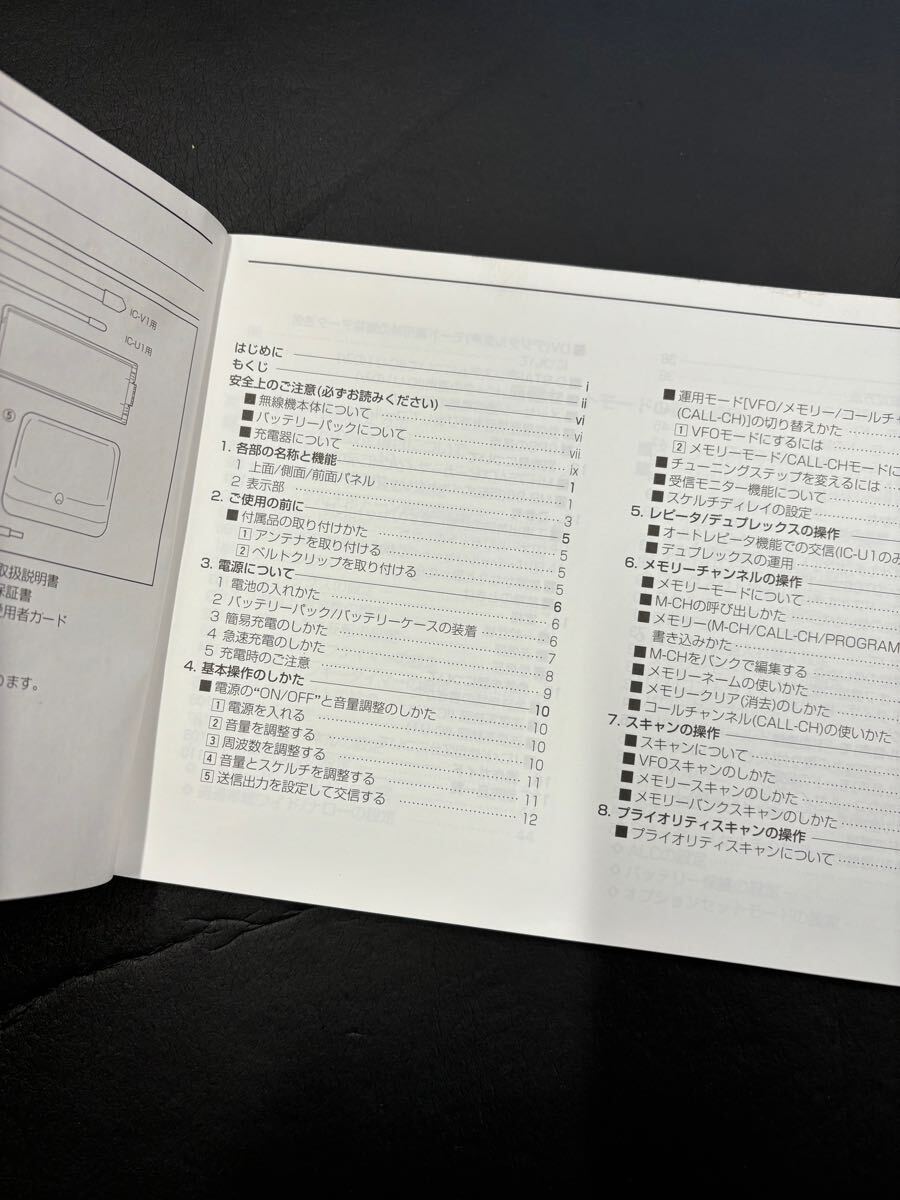 IC-V1用
IC-U1用
⑤
取扱説明書
保証書
使用者カード
ります。
はじめに i
もくじ ii
安全上のご注意(必ずお読みください) vi
■無線機本体について vi
■バッテリーパックについて vii
■充電器について ix
1. 各部の名称と機能 1
1 上面/側面/前面パネル 1
2 表示部 3
2. ご使用の前に 5
■付属品の取り付けかた 5
1 アンテナを取り付ける 5
2 ベルトクリップを取り付ける 5
3. 電源について 6
1 電池の入れかた 6
2 バッテリーパック/バッテリーケースの装着 6
3 簡易充電のしかた 7
4 急速充電のしかた 8
5 充電時のご注意 9
4. 基本操作のしかた 10
■電源の“ON/OFF”と音量調整のしかた 10
1 電源を入れる 10
2 音量を調整する 10
3 周波数を調整する 11
4 音量とスケルチを調整する 11
5 送信出力を設定して交信する 12
■運用モード[VFO/メモリー/コールチャ
(CALL-CH)]の切り替えかた
1 VFOモードにするには
2 メモリーモード/CALL-CHモードに
■チューニングステップを変えるには
■受信モニター機能について
■スケルチディレイの設定
5. レピータ/デュプレックスの操作
■オートレピータ機能での交信(IC-U1のみ
■デュプレックスの運用
6. メモリーチャンネルの操作
■メモリーモードについて
■M-CHの呼び出しかた
■メモリー(M-CH/CALL-CH/PROGRAM
書き込みかた
■M-CHをバンクで編集する
■メモリーネームの使いかた
■メモリークリア(消去)のしかた
■コールチャンネル(CALL-CH)の使いかた
7. スキャンの操作
■スキャンについて
■VFOスキャンのしかた
■メモリースキャンのしかた
■メモリーバンクスキャンのしかた
8. プライオリティスキャンの操作
■プライオリティスキャンについて